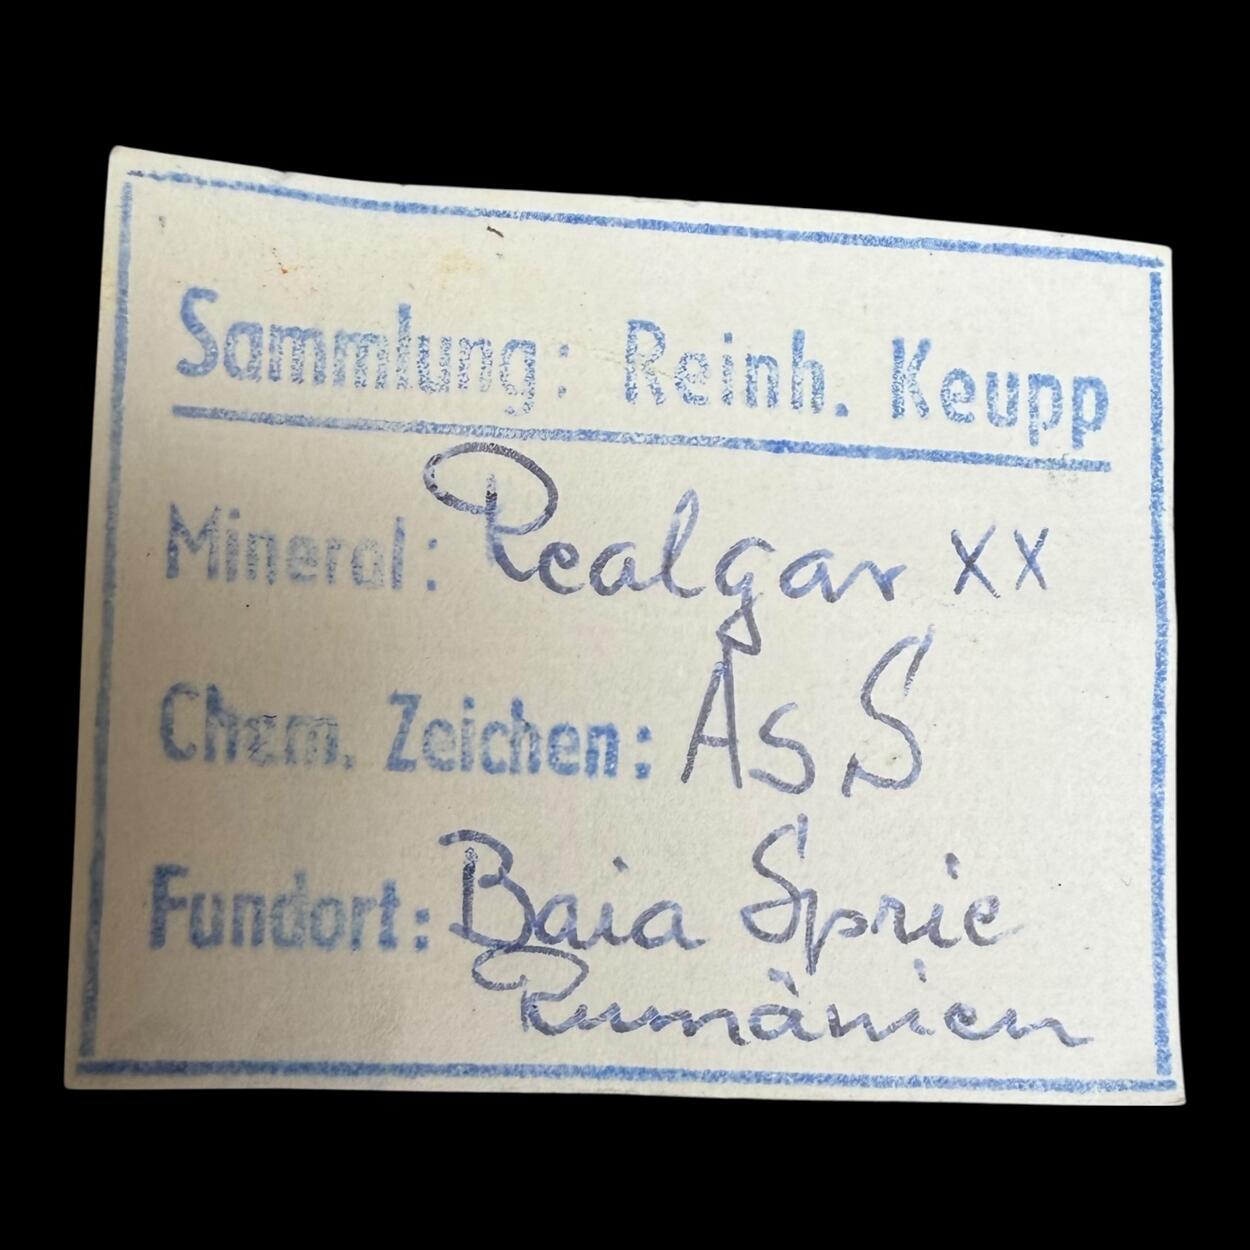 Sammlung: Reinh. Keupp
Mineral: Realgar xx
Chem. Zeichen: AsS
Fundort: Baia Sprie
Rumänien